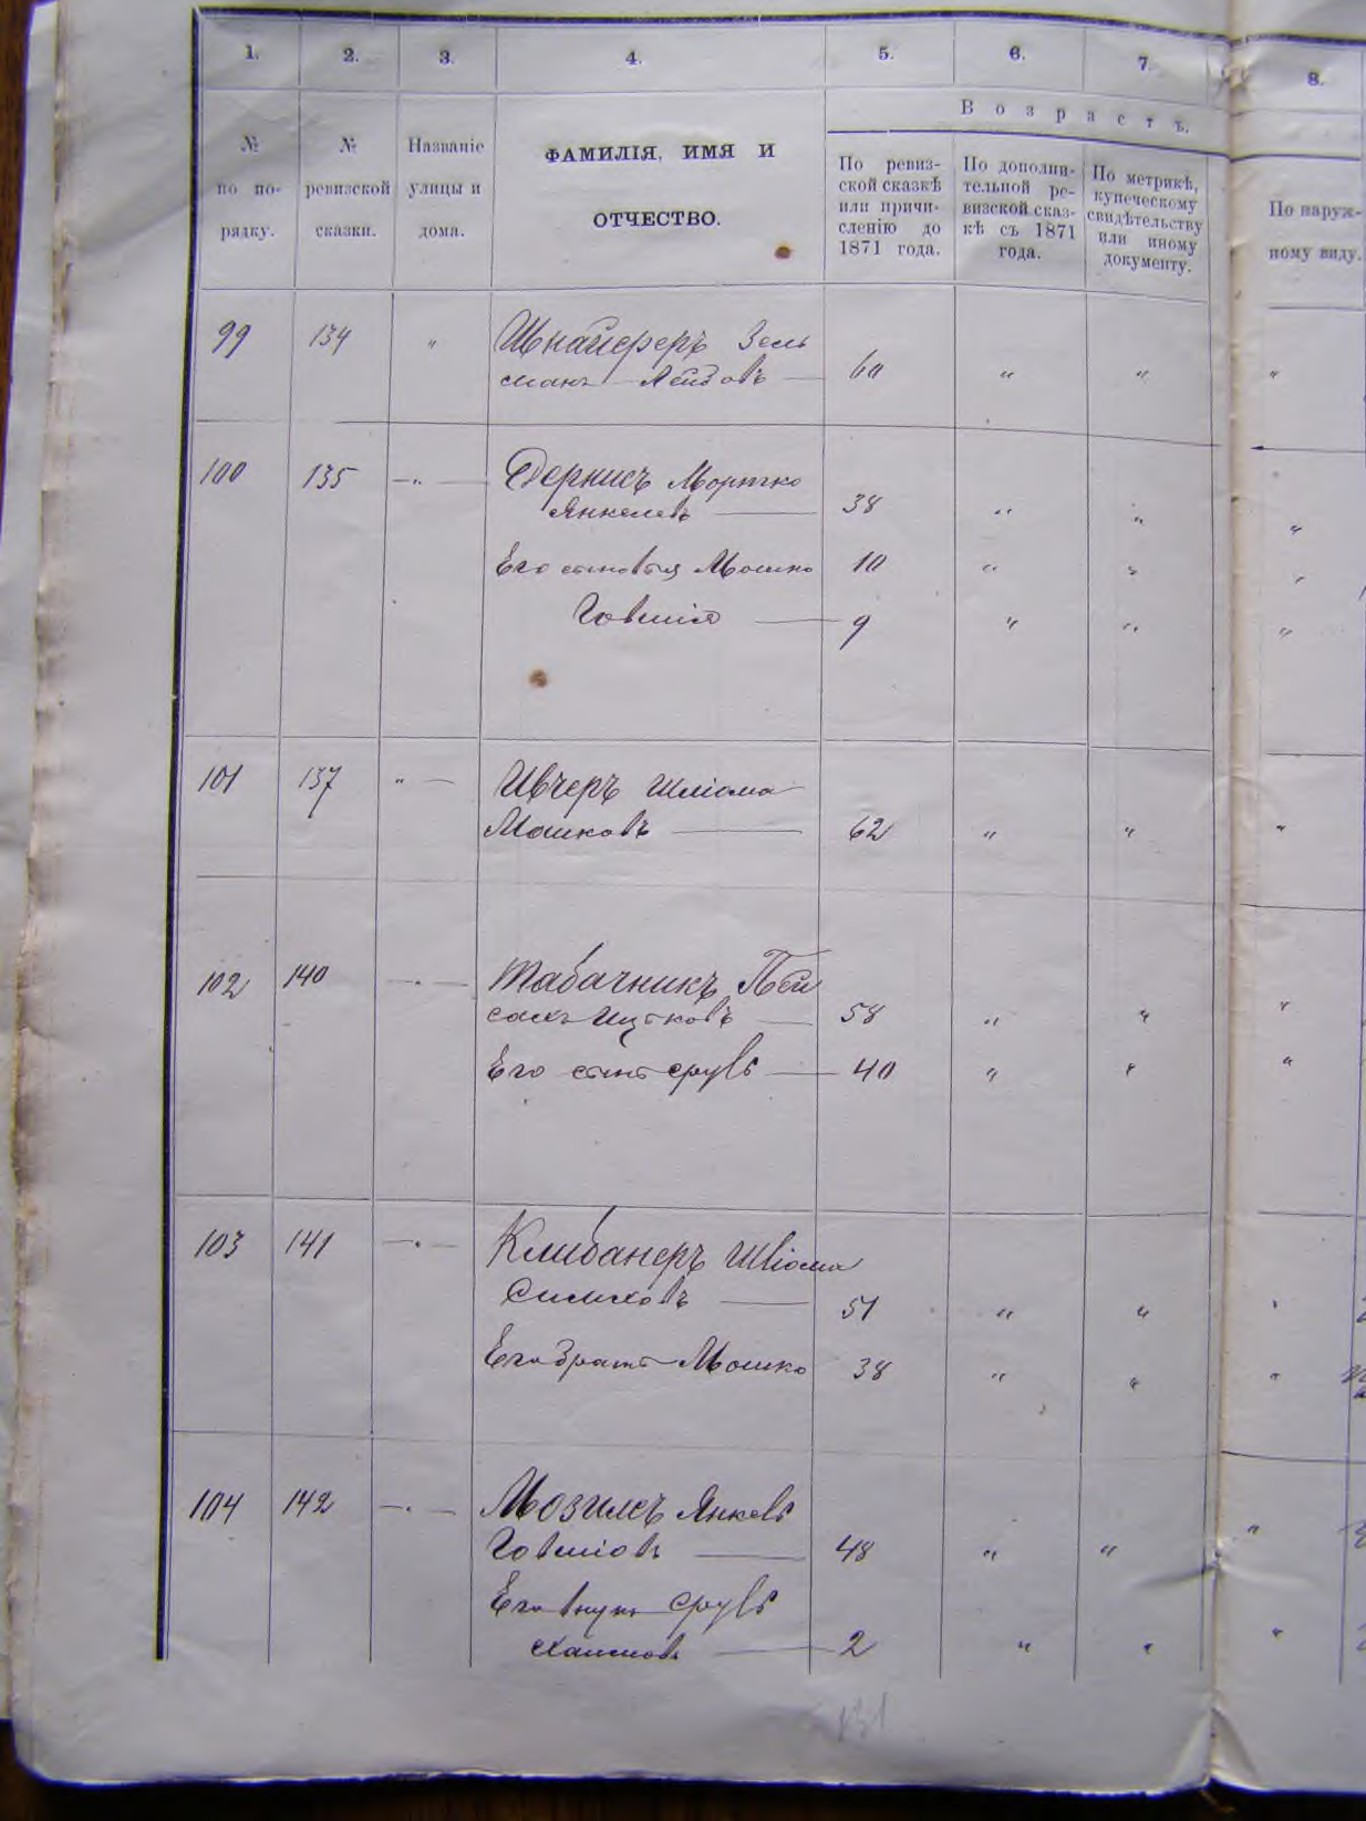 1. 2. 3. 4. 5. 6. 7. 8.
Возрастъ.
№ по по-рядку.
№ ревизской сказки.
Названіе улицы и дома.
ФАМИЛІЯ, ИМЯ И
ОТЧЕСТВО.
По ревиз-
ской сказкѣ
или причи-
сленію до
1871 года.
По дополни-
тельной ре-
визской сказ-
кѣ съ 1871
года.
По метрикѣ,
купеческому
свидѣтельству
или иному
документу.
По наруж-
ному виду.
99 134 " Шнайдеръ Зель
манъ Лейбовъ — 60 " " "
100 135 —"— Дернисъ Мортко
Янкелевъ — 38 " " "
Его сыновья Мошко 10 " " "
Говшія — 9 " " "
101 137 " — Швчеръ Шліома
Мошковъ — 62 " " "
102 140 —"— Табачникъ Пей
сахъ Ицковъ — 58 " " "
Его сынъ Срулъ — 40 " " "
103 141 —"— Клибанеръ Шліома
Симховъ — 51 " " "
Его братъ Мошко 38 " " "
104 142 —"— Мозилсъ Янкель
Говшіовъ — 48 " " "
Его внукъ Сруль
Хаимовъ — 2 " " "
131